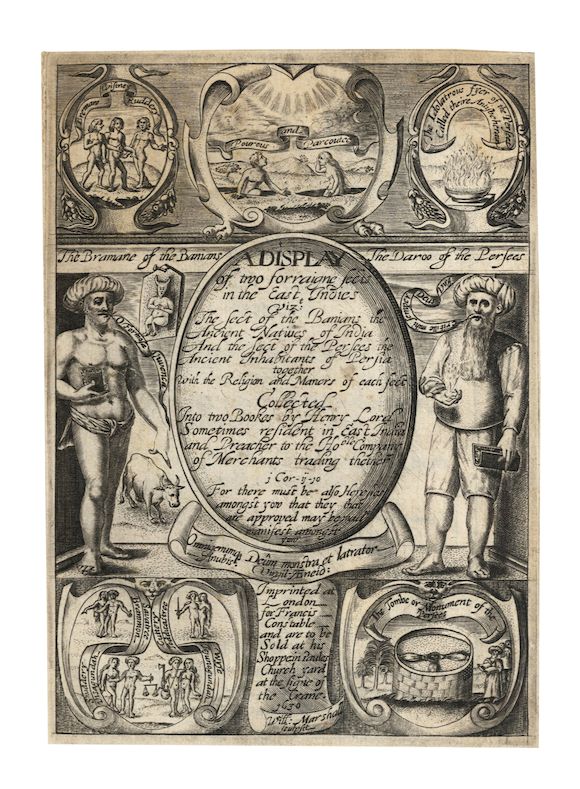 Bremaw Vistney Ruddery
Pourous and Parcoutee
The Idolatrous fyer of the Persees
Called theire
The Bramane of the Banians
The Daroo of the Persees
A DISPLAY
of two forraigne sects
in the East Indies
Viz:
The sect of the Banians the
Ancient Natives of India
And the sect of the Persees the
Ancient Inhabitants of Persia
together
with the Religion and Maners of each sect
Collected
Into two Bookes by Henry Lord
Sometimes resident in East India
and Preacher to the Hoble Company
of Merchants trading thether
1 Cor-ij-19
For there must be also Heresies
amongst yow that they that
are approved may be made
manifest amongst
yow
Omnigenumq Deûm monstra et latrator
Anubis. Virgil-Æneid:
Imprinted at
London
for Francis
Constable
and are to be
Sold at his
Shoppe in Paules
Church yard
at the signe of
the Crane.
1630
Will: Marshall
sculpsit
The Tombe or Monument of the
Persees